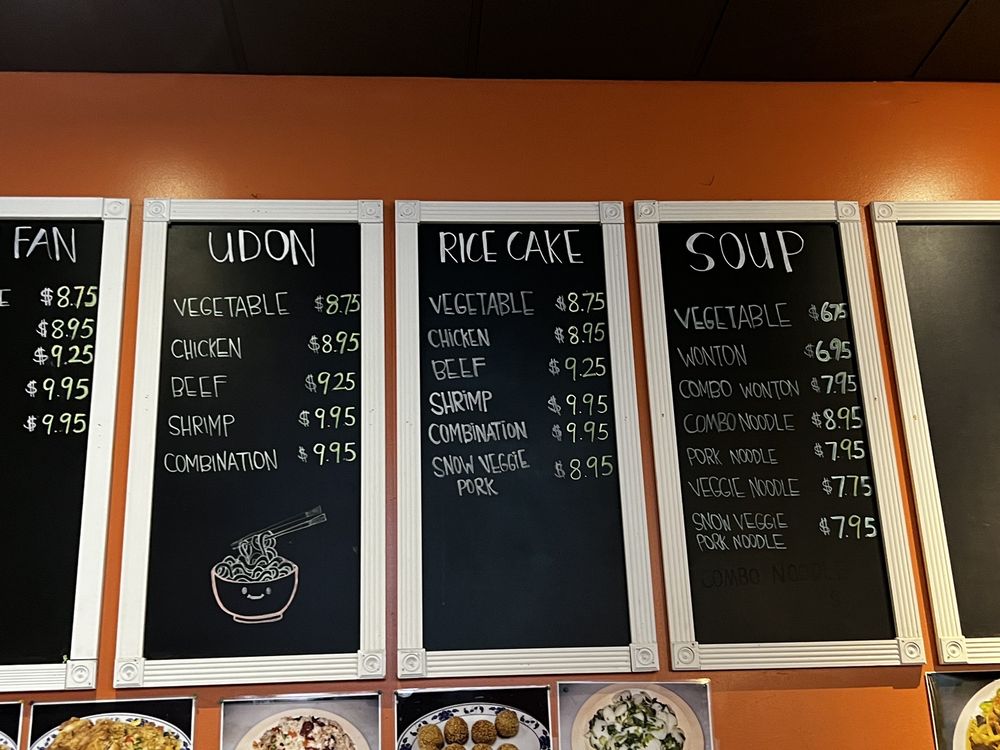 FAN
E $8.75
$8.95
$9.25
$9.95
$9.95
UDON
VEGETABLE $8.75
CHICKEN $8.95
BEEF $9.25
SHRIMP $9.95
COMBINATION $9.95
RICE CAKE
VEGETABLE $8.75
CHICKEN $8.95
BEEF $9.25
SHRIMP $9.95
COMBINATION $9.95
SNOW VEGGIE $8.95
PORK
SOUP
VEGETABLE $6.75
WONTON $6.95
COMBO WONTON $7.95
COMBO NOODLE $8.95
PORK NOODLE $7.95
VEGGIE NOODLE $7.75
SNOW VEGGIE $7.95
PORK NOODLE
COMBO NOODLE